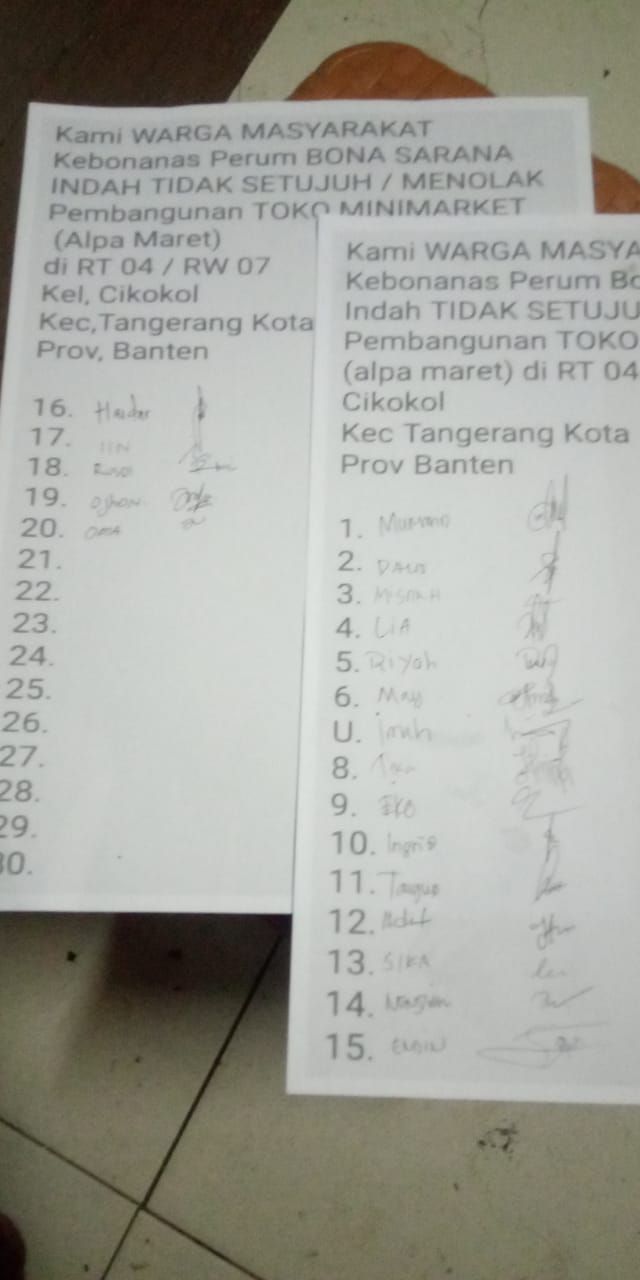 Kami WARGA MASYARAKAT
Kebonanas Perum BONA SARANA
INDAH TIDAK SETUJUH / MENOLAK
Pembangunan TOKO MINIMARKET
(Alpa Maret)
di RT 04 / RW 07
Kel, Cikokol
Kec,Tangerang Kota
Prov, Banten
16. Haidar
17. IIN
18.
19.
20. OMA
21.
22.
23.
24.
25.
26.
27.
28.
29.
30.
Kami WARGA MASYA
Kebonanas Perum Bo
Indah TIDAK SETUJU
Pembangunan TOKO
(alpa maret) di RT 04
Cikokol
Kec Tangerang Kota
Prov Banten
1.
2.
3.
4. LIA
5. Riyah
6. May
U.
8.
9. EKO
10. Ingris
11.
12.
13. SIKA
14.
15.